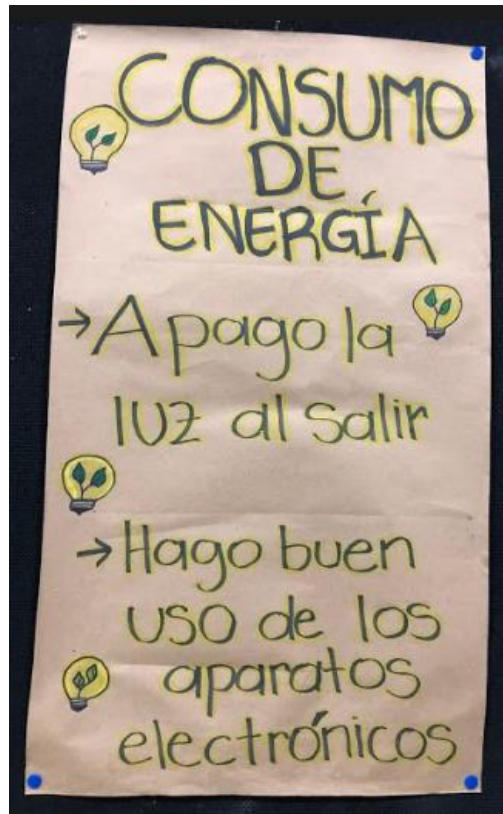 CONSUMO
DE
ENERGÍA
→Apago la
luz al salir
→Hago buen
uso de los
aparatos
electrónicos